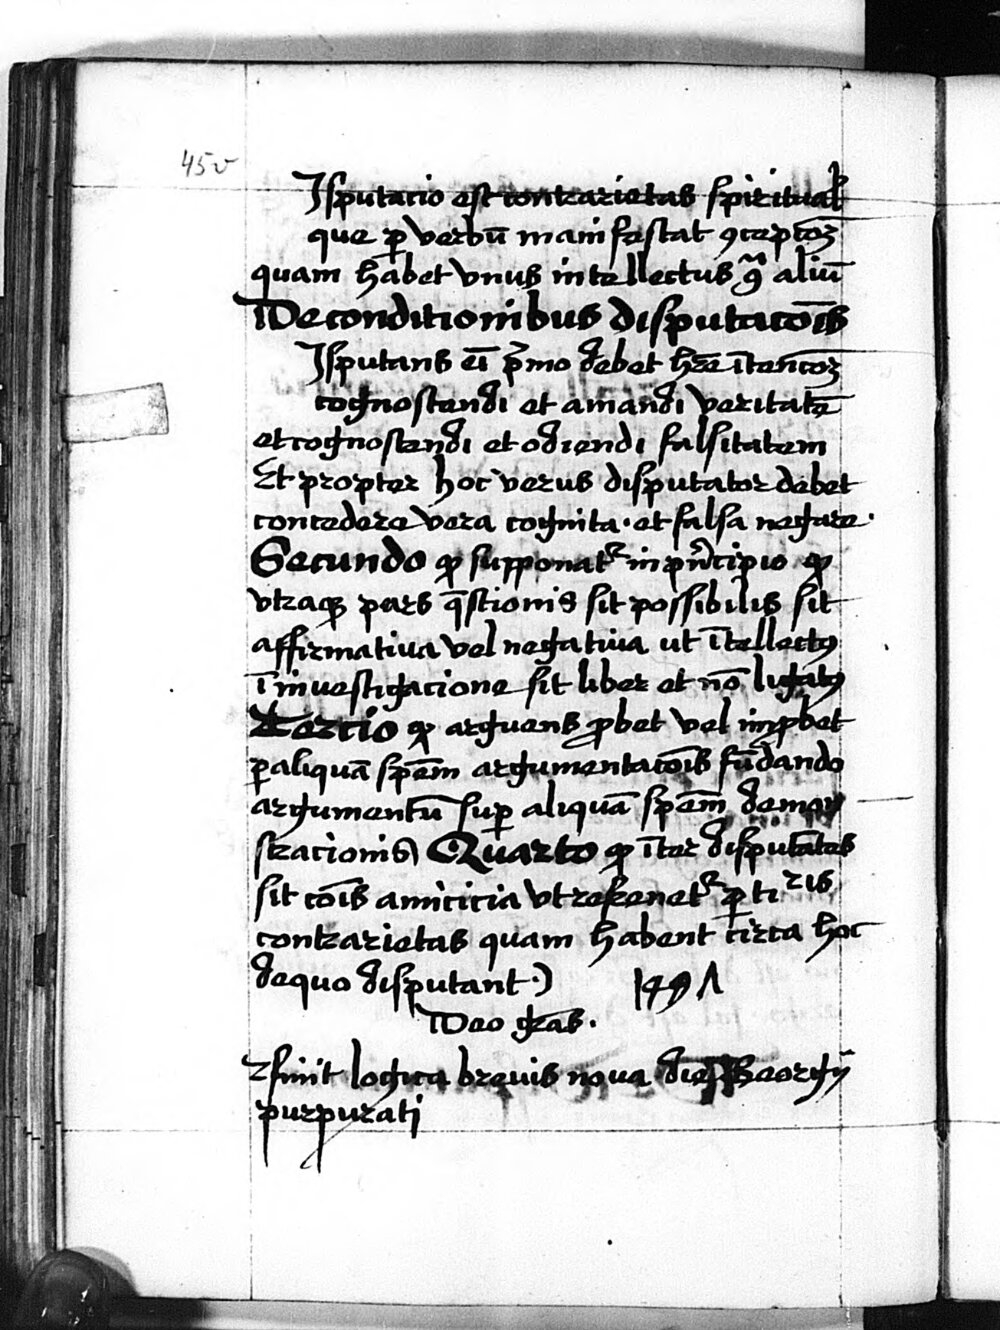 45v
Jsputacio est contrarietas spiritual
que p̱ verbū manifestat ꝯcepcoꝫ
quam habet vnus intellectus ꝯᵃ aliū
De conditionibus disputacōis
Jsputans eī p̄mo debet hr̄e ītencoꝫ
cognoscendi et amandi veritatē
et cognoscendi et odiendi falsitatem
Et propter hoc verus disputator debet
concedere vera cognita · et falsa negare ·
Secundo ꝙ supponatᷣ in pn̄cipio ꝙ
vtraqꝫ pars q̄stionis sit possibilis sit
affirmatiua vel negatiua ut ītellectꝰ
ī inuestigacione sit liber et nō ligatꝰ
Tercio ꝙ arguens ꝓbet vel imꝓbet
ꝑ aliquā spēm argumentacōis fūdando
argumentū suꝑ aliquā spēm demon
stracionis) Quarto ꝙ īter disputātes
sit cōis amicicia vt refrenetᷣ
contrarietas quam habent circa hoc
de quo disputant ·) 1491
Deo gr̄as ·
finit logica breuis noua Georgij
purpurati